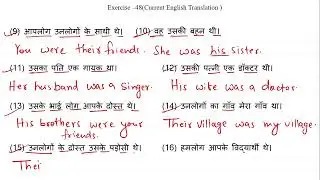 Exercise -48(Current English Translation )
(9) आपलोग उनलोगों के साथी थे। (10) वह उसकी बहन थी।
You were their friends. She was his sister.
(11) उसका पति एक गायक था। (12) उसकी पत्नी एक डॉक्टर थी।
Her husband was a singer. His wife was a doctor.
(13) उसके भाई लोग आपके दोस्त थे। (14) उनलोगों का गाँव मेरा गाँव था।
His brothers were your friends. Their village was my village.
(15) उनलोगों के दोस्त उसके पड़ोसी थे। (16) हमलोग आपके विद्यार्थी थे।
Thei